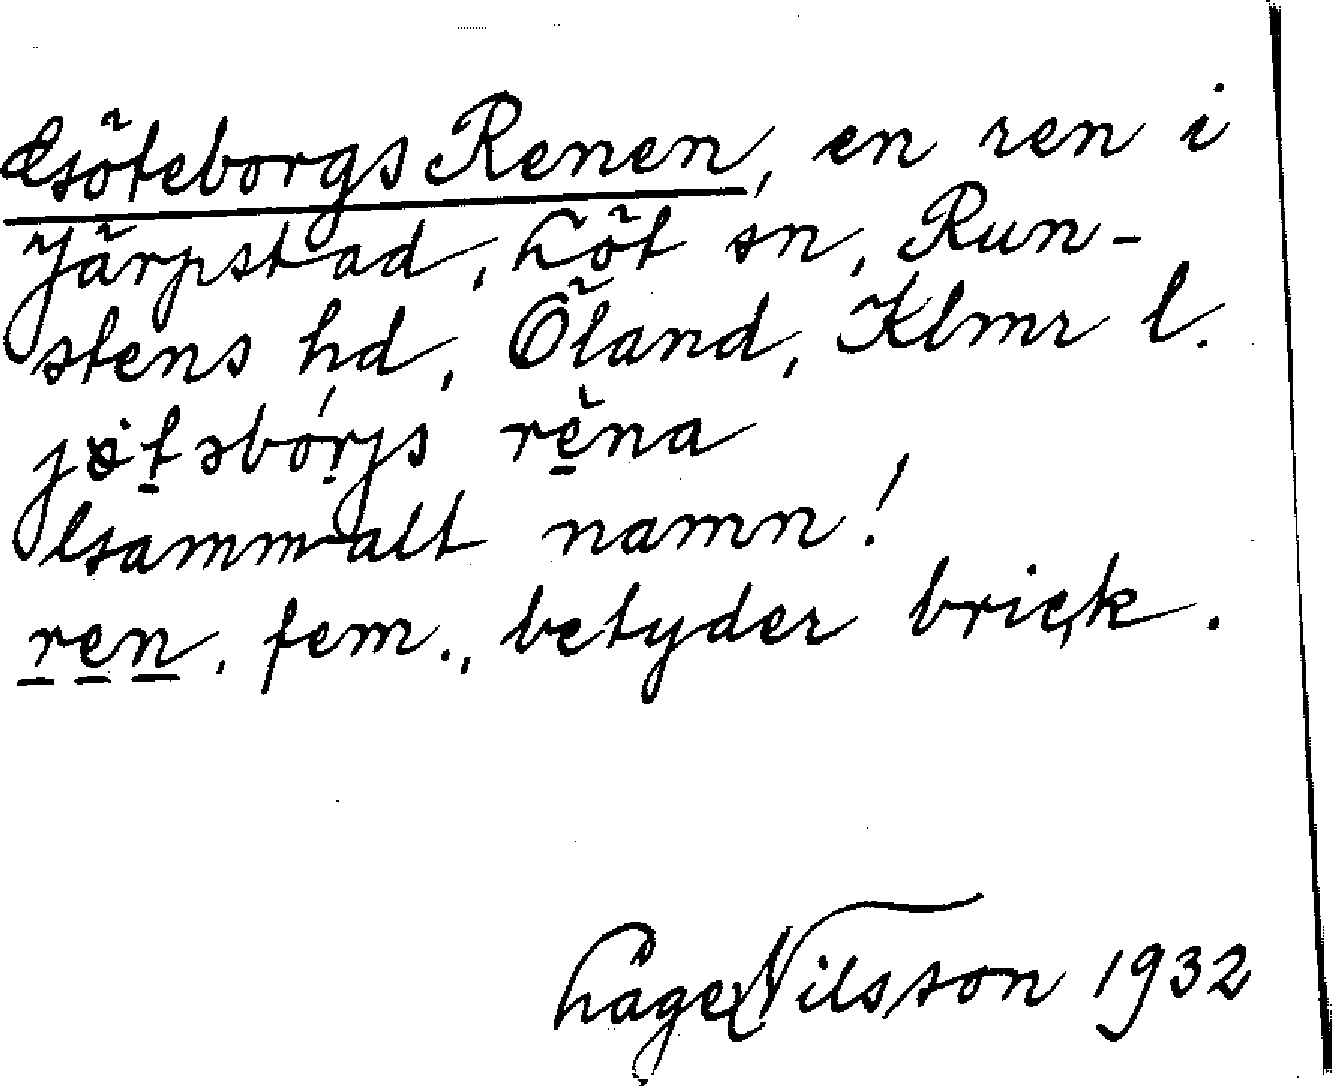 Göteborgs Renen, en ren i
Järpstad, Löt sn, Run-
stens hd, Öland, Klmr l.
jötəbórjs rèna
Gammalt namn!
ren, fem., betyder brick.
Lage Nilsson 1932